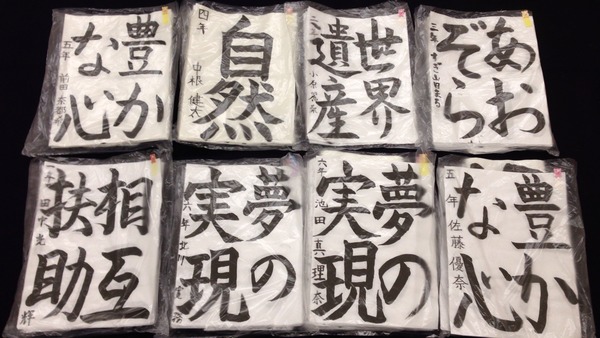 豊か
な心
五年 前田
自然
四年 中根 健太
世界
遺産
あお
ぞら
三年
相互
扶助
夢の
実現
六年
夢の
実現
六年 池田 真理奈
豊か
な心
五年 佐藤 優奈